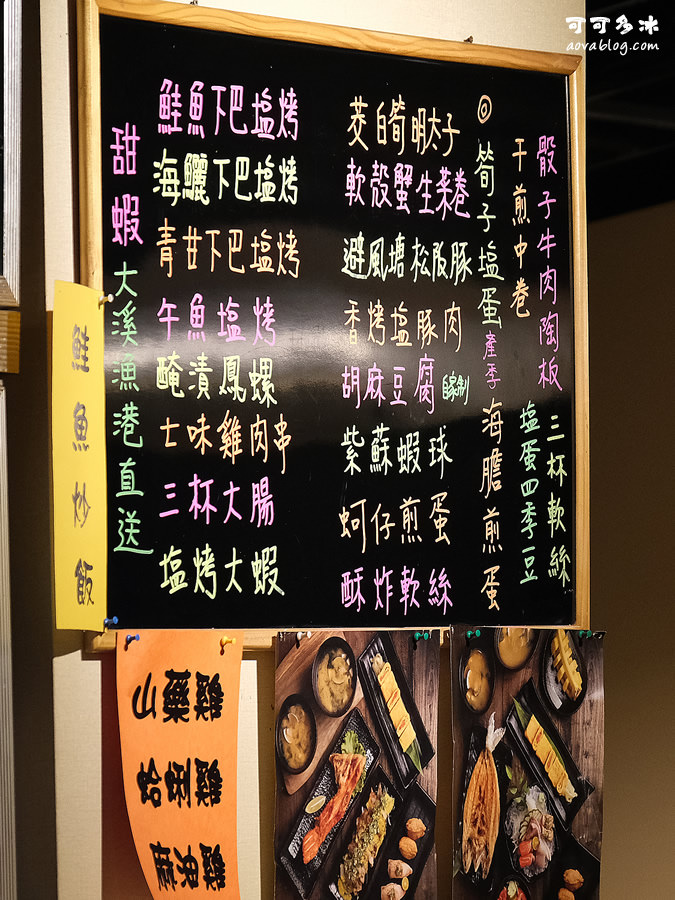 可可多冰
aovablog.com
骰子牛肉陶板
三杯軟絲
干煎中卷
塩蛋四季豆
◎筍子塩蛋產季
海膽煎蛋
茭白筍明太子
軟殼蟹生菜卷
避風塘松阪豚
香烤塩豚肉
胡麻豆腐自家制
紫蘇蝦球
蚵仔煎蛋
酥炸軟絲
鮭魚下巴塩烤
海鱺下巴塩烤
青甘下巴塩烤
午魚塩烤
醃漬鳳螺
七味雞肉串
三杯大腸
塩烤大蝦
甜蝦大溪漁港直送
鮭魚炒飯
山藥雞
蛤蜊雞
麻油雞